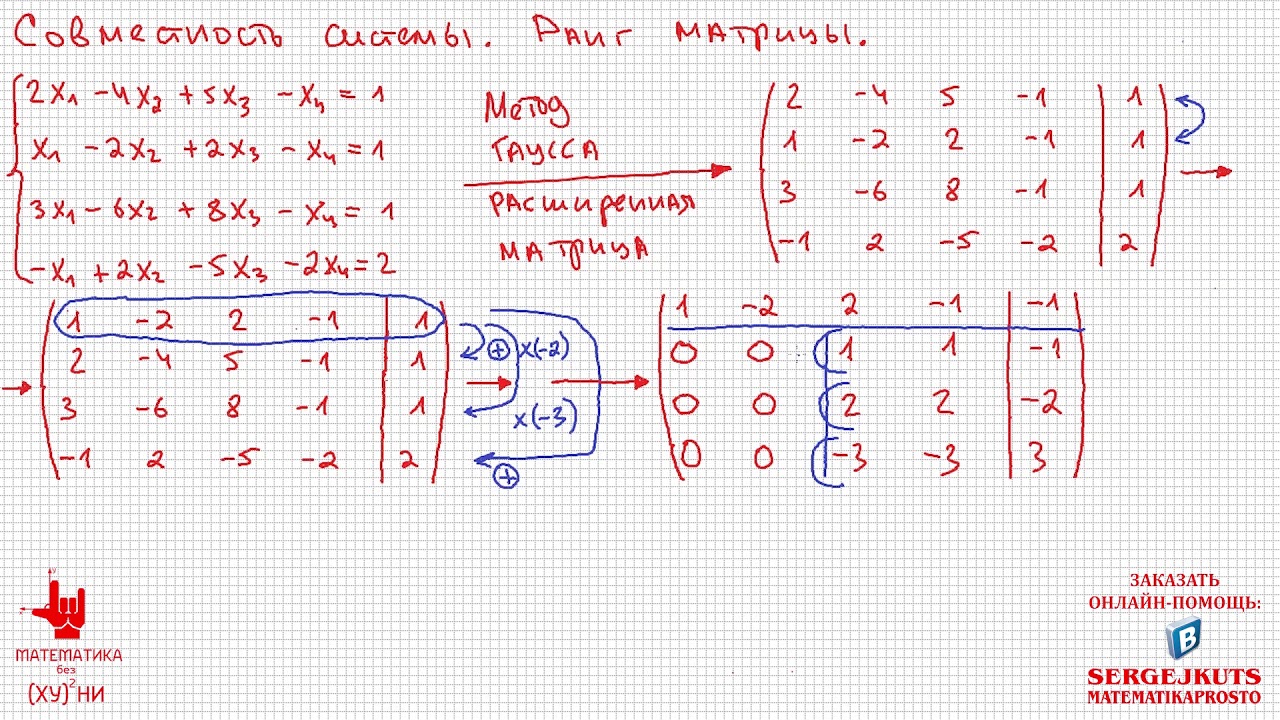 Совместность системы. Ранг матрицы.
2x₁ - 4x₂ + 5x₃ - x₄ = 1
x₁ - 2x₂ + 2x₃ - x₄ = 1
3x₁ - 6x₂ + 8x₃ - x₄ = 1
-x₁ + 2x₂ - 5x₃ - 2x₄ = 2
Метод
Гаусса
расширенная
матрица
2 -4 5 -1 | 1
1 -2 2 -1 | 1
3 -6 8 -1 | 1
-1 2 -5 -2 | 2
1 -2 2 -1 | 1
2 -4 5 -1 | 1
3 -6 8 -1 | 1
-1 2 -5 -2 | 2
+ x(-2)
x(-3)
+
1 -2 2 -1 | -1
0 0 1 1 | -1
0 0 2 2 | -2
0 0 -3 -3 | 3
y
x
МАТЕМАТИКА
без
(ХУ)²НИ
ЗАКАЗАТЬ
ОНЛАЙН-ПОМОЩЬ:
B
SERGEJKUTS
MATEMATIKAPROSTO